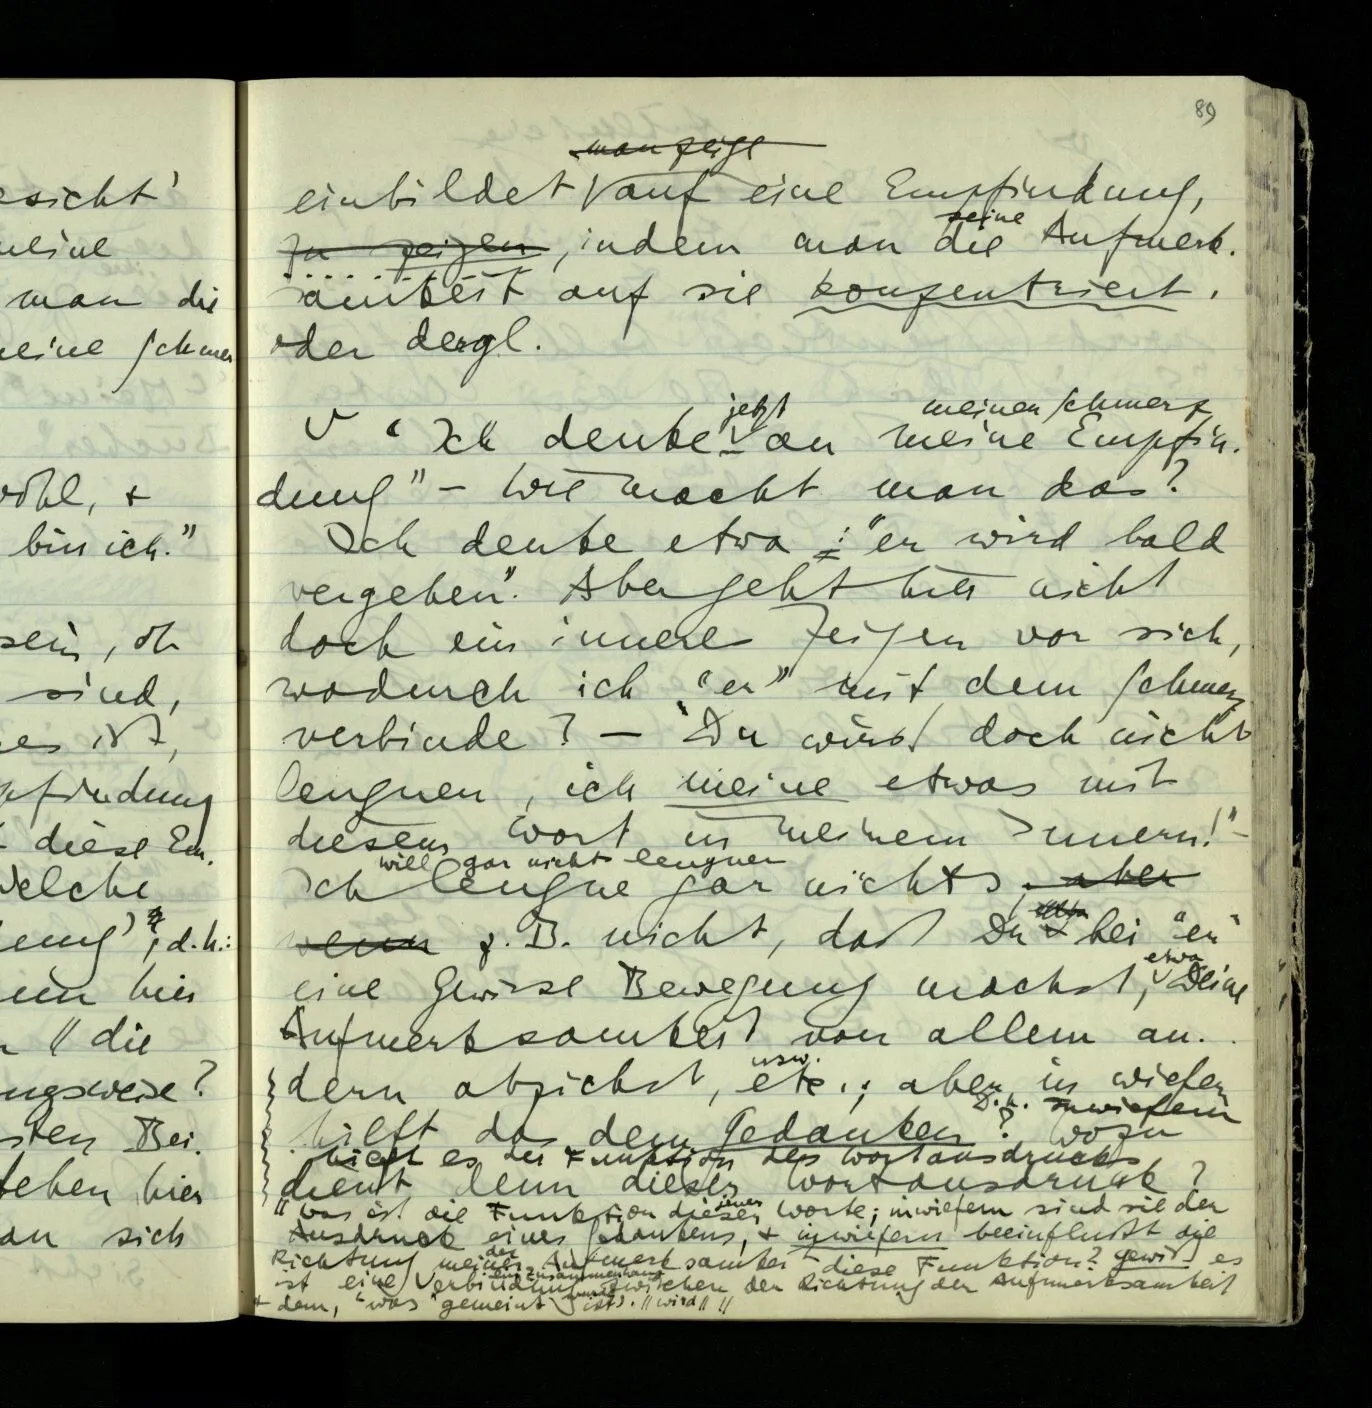 esicht'
meine
man die
meine Schmer
wohl, +
bin ich."
sein, ob
sind,
es ist,
pfindung
diese Em.
Welche
ung', d.h.:
ein hier
" die
ungsweise?
sten Bei.
tehen hier
an sich
89
man zeige
einbildet auf eine Empfindung,
seine
zu zeigen, indem man die Aufmerk.
samkeit auf sie konzentriert.
oder dergl.
jetzt meinen Schmerz
V "Ich denke an meine Empfin.
dung" – Wie macht man das?
Ich denke etwa: "er wird bald
vergehen". Aber geht hier nicht
doch ein inneres Zeigen vor sich,
wodurch ich "er" mit dem Schmerz
verbinde? – "Du wirst doch nicht
leugnen, ich meine etwas mit
diesem Wort in meinem Innern!" –
will gar nichts leugnen
Ich leugne gar nichts, aber
wenn z.B. nicht, daß Du bei "er"
etwa
eine gewisse Bewegung machst, Deine
Aufmerksamkeit von allem an.
usw.
dern abziehst, etc.; aber in wiefern
D.h. inwiefern
hilft das dem Gedanken? Wozu
hilft es der Funktion des Wortausdrucks
dient denn dieser Wortausdruck?
jener
"Was ist die Funktion dieser Worte; inwiefern sind sie der
Ausdruck eines Gedankens, + inwiefern beeinflußt die
der
Richtung meiner Aufmerksamkeit diese Funktion? Gewiß es
ein Zusammenhang
ist eine Verbindung zwischen der Richtung der Aufmerksamkeit
+ dem, "was gemeint ist". "wird" "